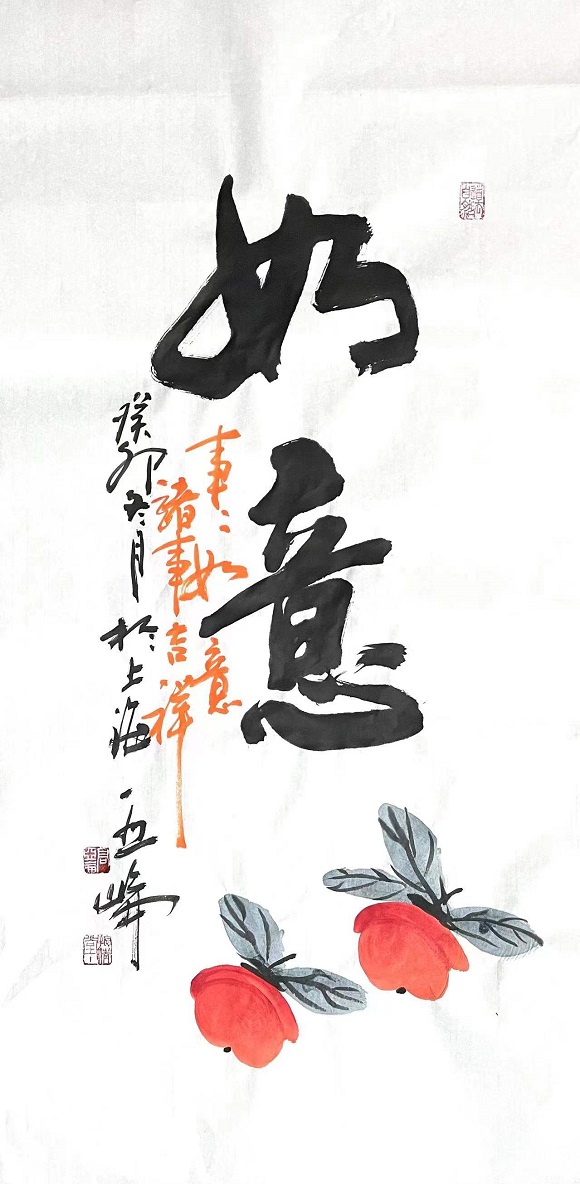 如意
事事如意
諸事吉祥
癸卯冬月於上海